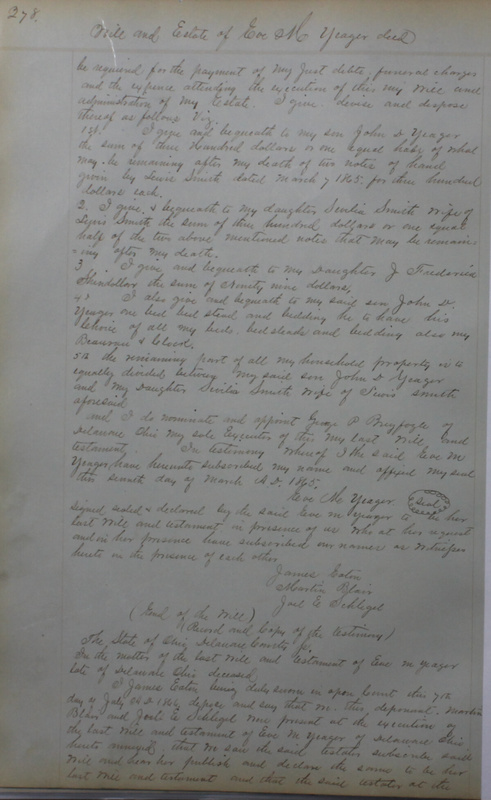 278.
Will and Estate of Eve M Yeager decd
be required for the payment of my Just debts, funeral charges
and the expence attending the execution of this my Will and
administration of my Estate. I give devise and dispose
thereof as follows Viz.
1st. I give and bequeath to my son John D Yeager
the sum of three Hundred dollars or one equal half of what
may be remaining after my death of two notes of hand
given by Lewis Smith dated March 7 1865. for three hundred
dollars each.
2. I give & bequeath to my daughter Sivilia Smith wife of
Lewis Smith the sum of three hundred dollars or one equal
half of the two above mentioned notes that may be remain=
=ing after my death.
3. I give and bequeath to my Daughter J Fredericka
the sum of Ninety nine dollars,
4th I also give and bequeath to my said son John D.
Yeager one bed bed stead and bedding he to have his
choice of all my beds. bedsteads and bedding also my
Beaurau & Clock.
5th the remaining part of all my household property is to
equally divided between my said son John D Yeager
and my Daughter Sivilia Smith wife of Lewis Smith
aforesaid
and I do nominate and appoint George P Breyfogle of
Delaware Ohio my sole Executor of this my last Will and
testament. In testimony whereof I the said Eve M
Yeager have hereunto subscribed my name and affixed my seal
this seventh day of March A.D. 1865.
Eve M Yeager (Seal)
signed, sealed & declared by the said Eve M Yeager to be her
last Will and testament in presence of us who at her request
and in her presence have subscribed our names as Witnesses
hereto in the presence of each other
James Eaton
Martin Blair
Joel E Schlegel
(End of the Will)
(Record and Copy of the testimony)
The State of Ohio Delaware County ss.
In the matter of the last Will and testament of Eve M Yeager
late of Delaware Ohio deceased
I James Eaton being duly sworn in open Court this 7th
day of July A D depose and say that in this deponent. Martin
Blair and Joel E Schlegel were present at the execution of
the last Will and testament of Eve M Yeager of Delaware Ohio
hereto annexed, that we saw the said testator subscribe said
Will and hear her publish and declare the same to be her
last Will and testament and that the said testator at the